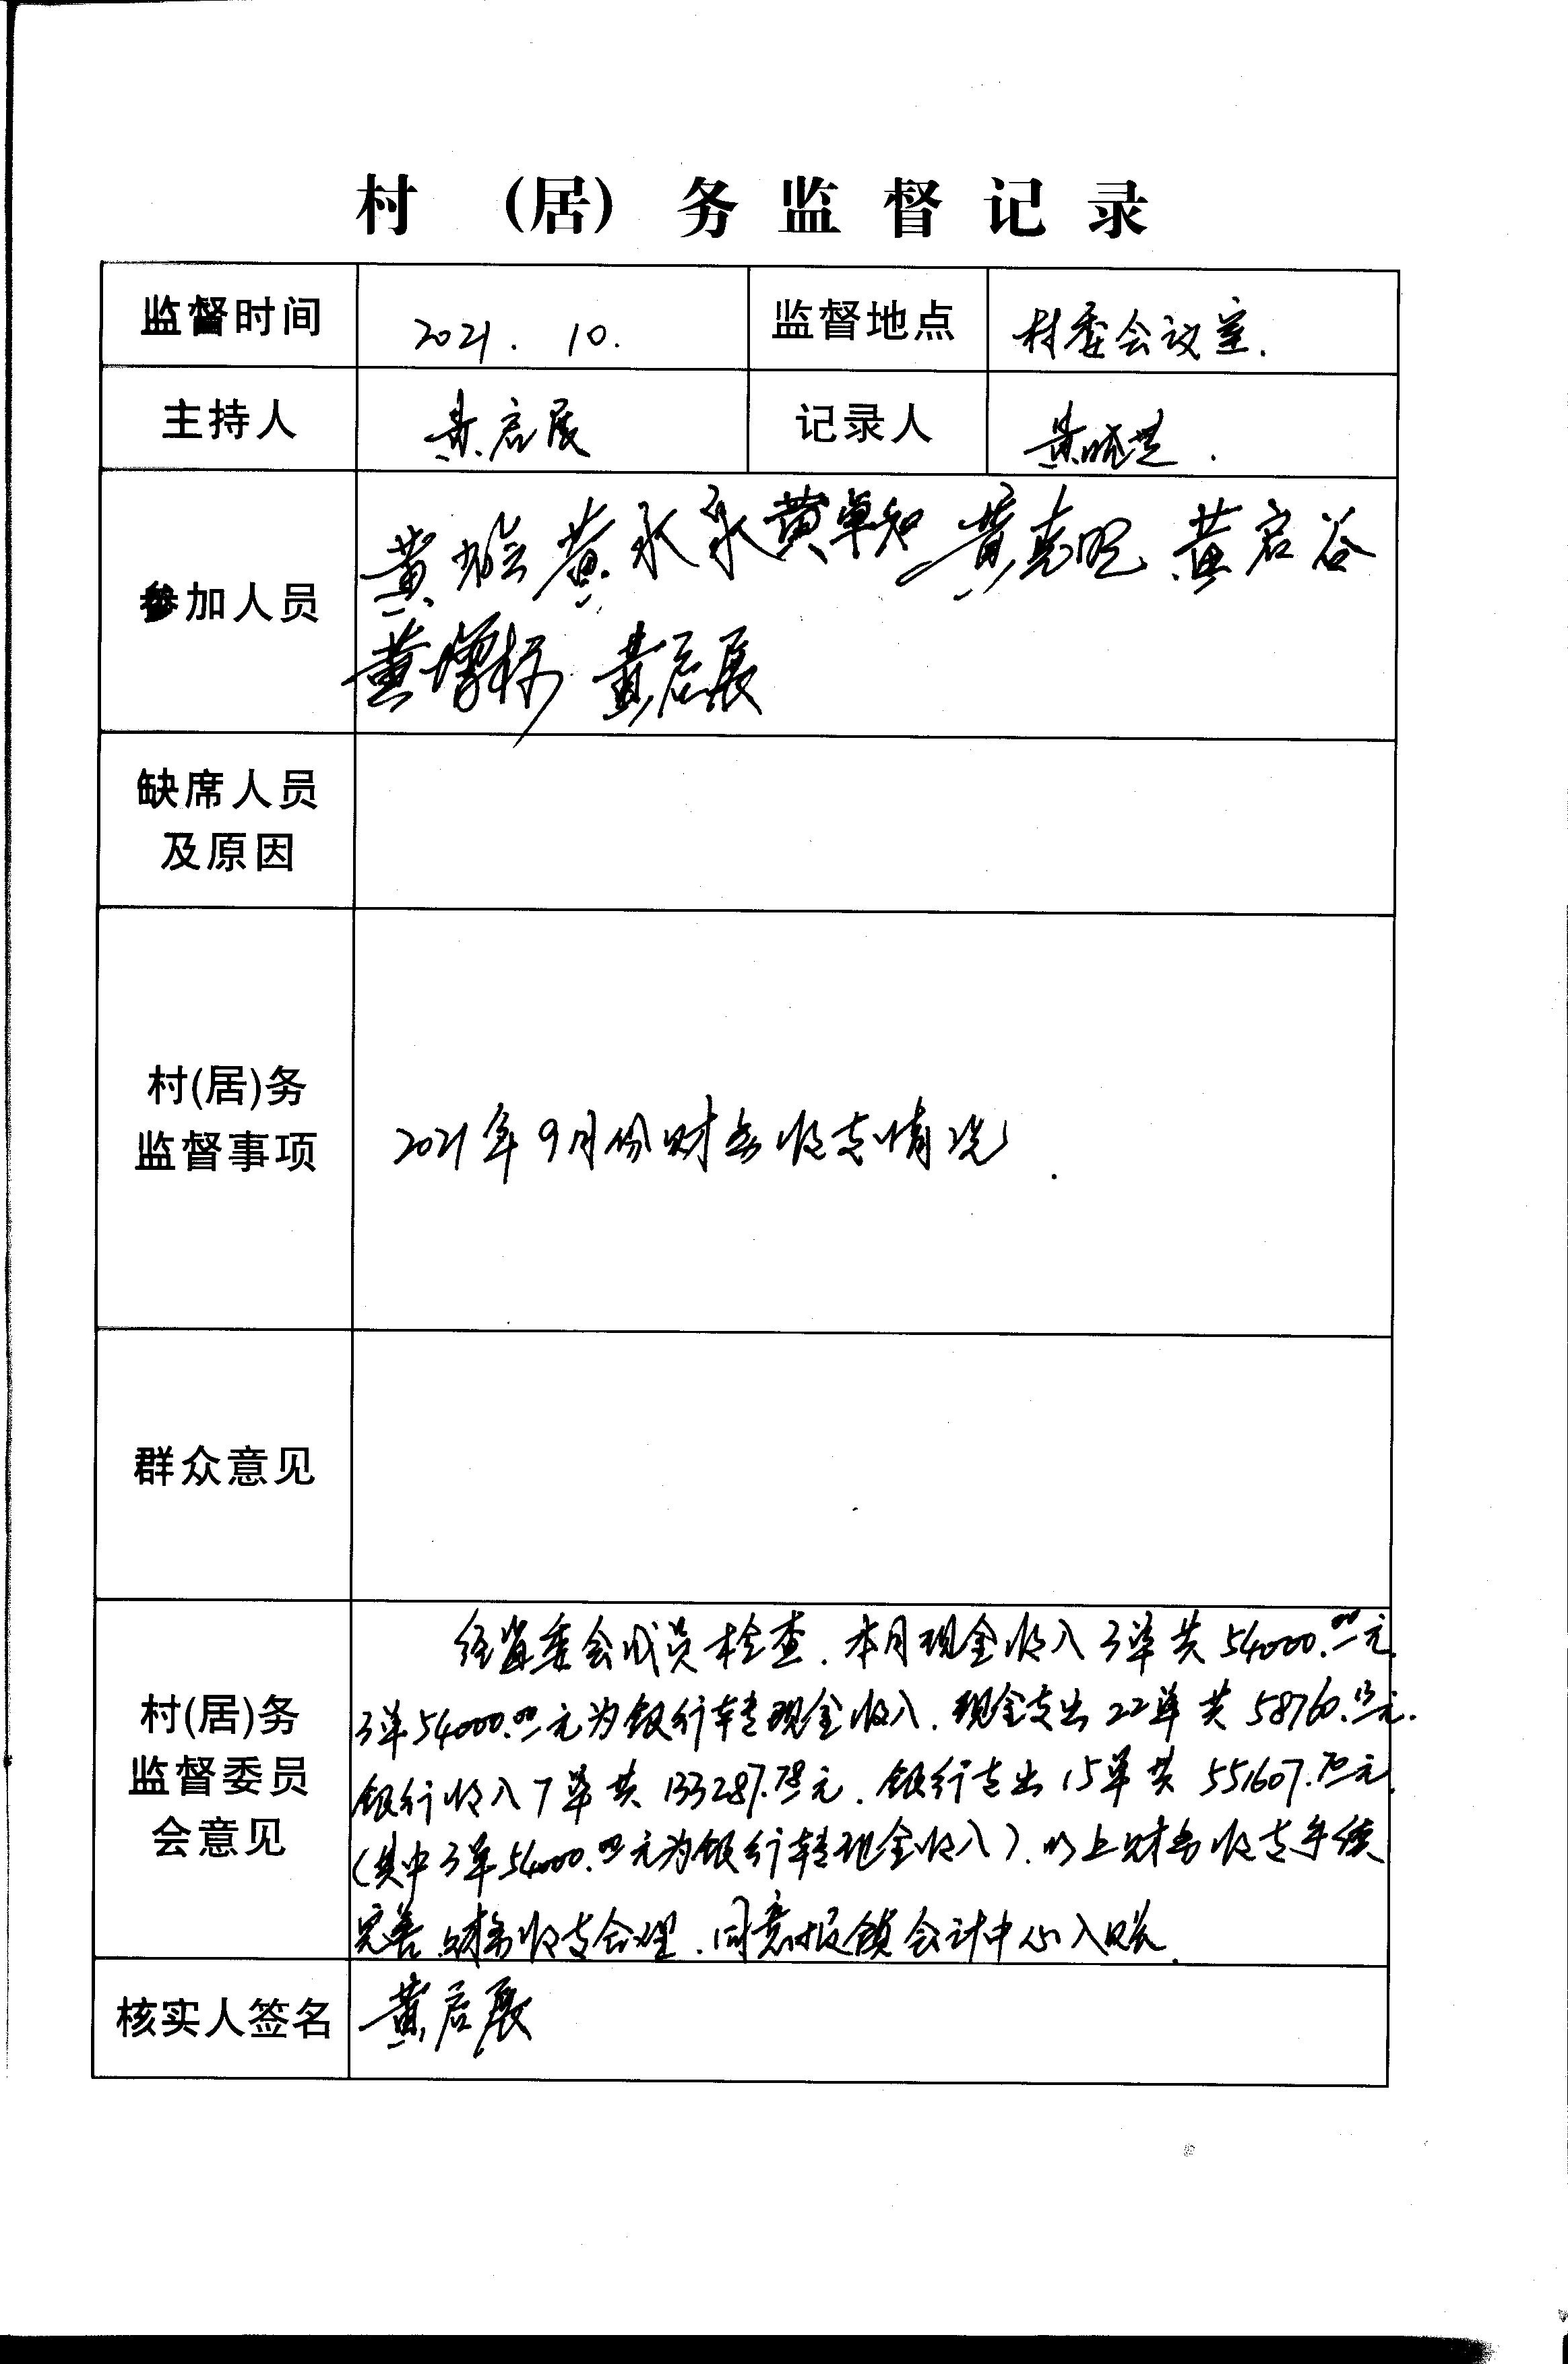 村 (居) 务 监 督 记 录
监督时间 2021. 10. 监督地点 村委会议室.
主持人 黄启展 记录人 黄
参加人员
黄 黄永永 黄卓知 黄克 黄启谷
黄增标 黄启展
缺席人员
及原因
村(居)务
监督事项
2021年9月份财务收支情况.
群众意见
村(居)务
监督委员
会意见
经监委会成员检查.本月现金收入3单共54000.00元.
3单54000.00元为银行转现金收入.现金支出22单共58760.13元.
银行收入7单共133287.78元.银行支出15单共551607.70元.
(其中3单54000.00元为银行转现金收入).以上财务收支手续
完善.财务收支合理.同意报镇会计中心入账.
核实人签名 黄启展